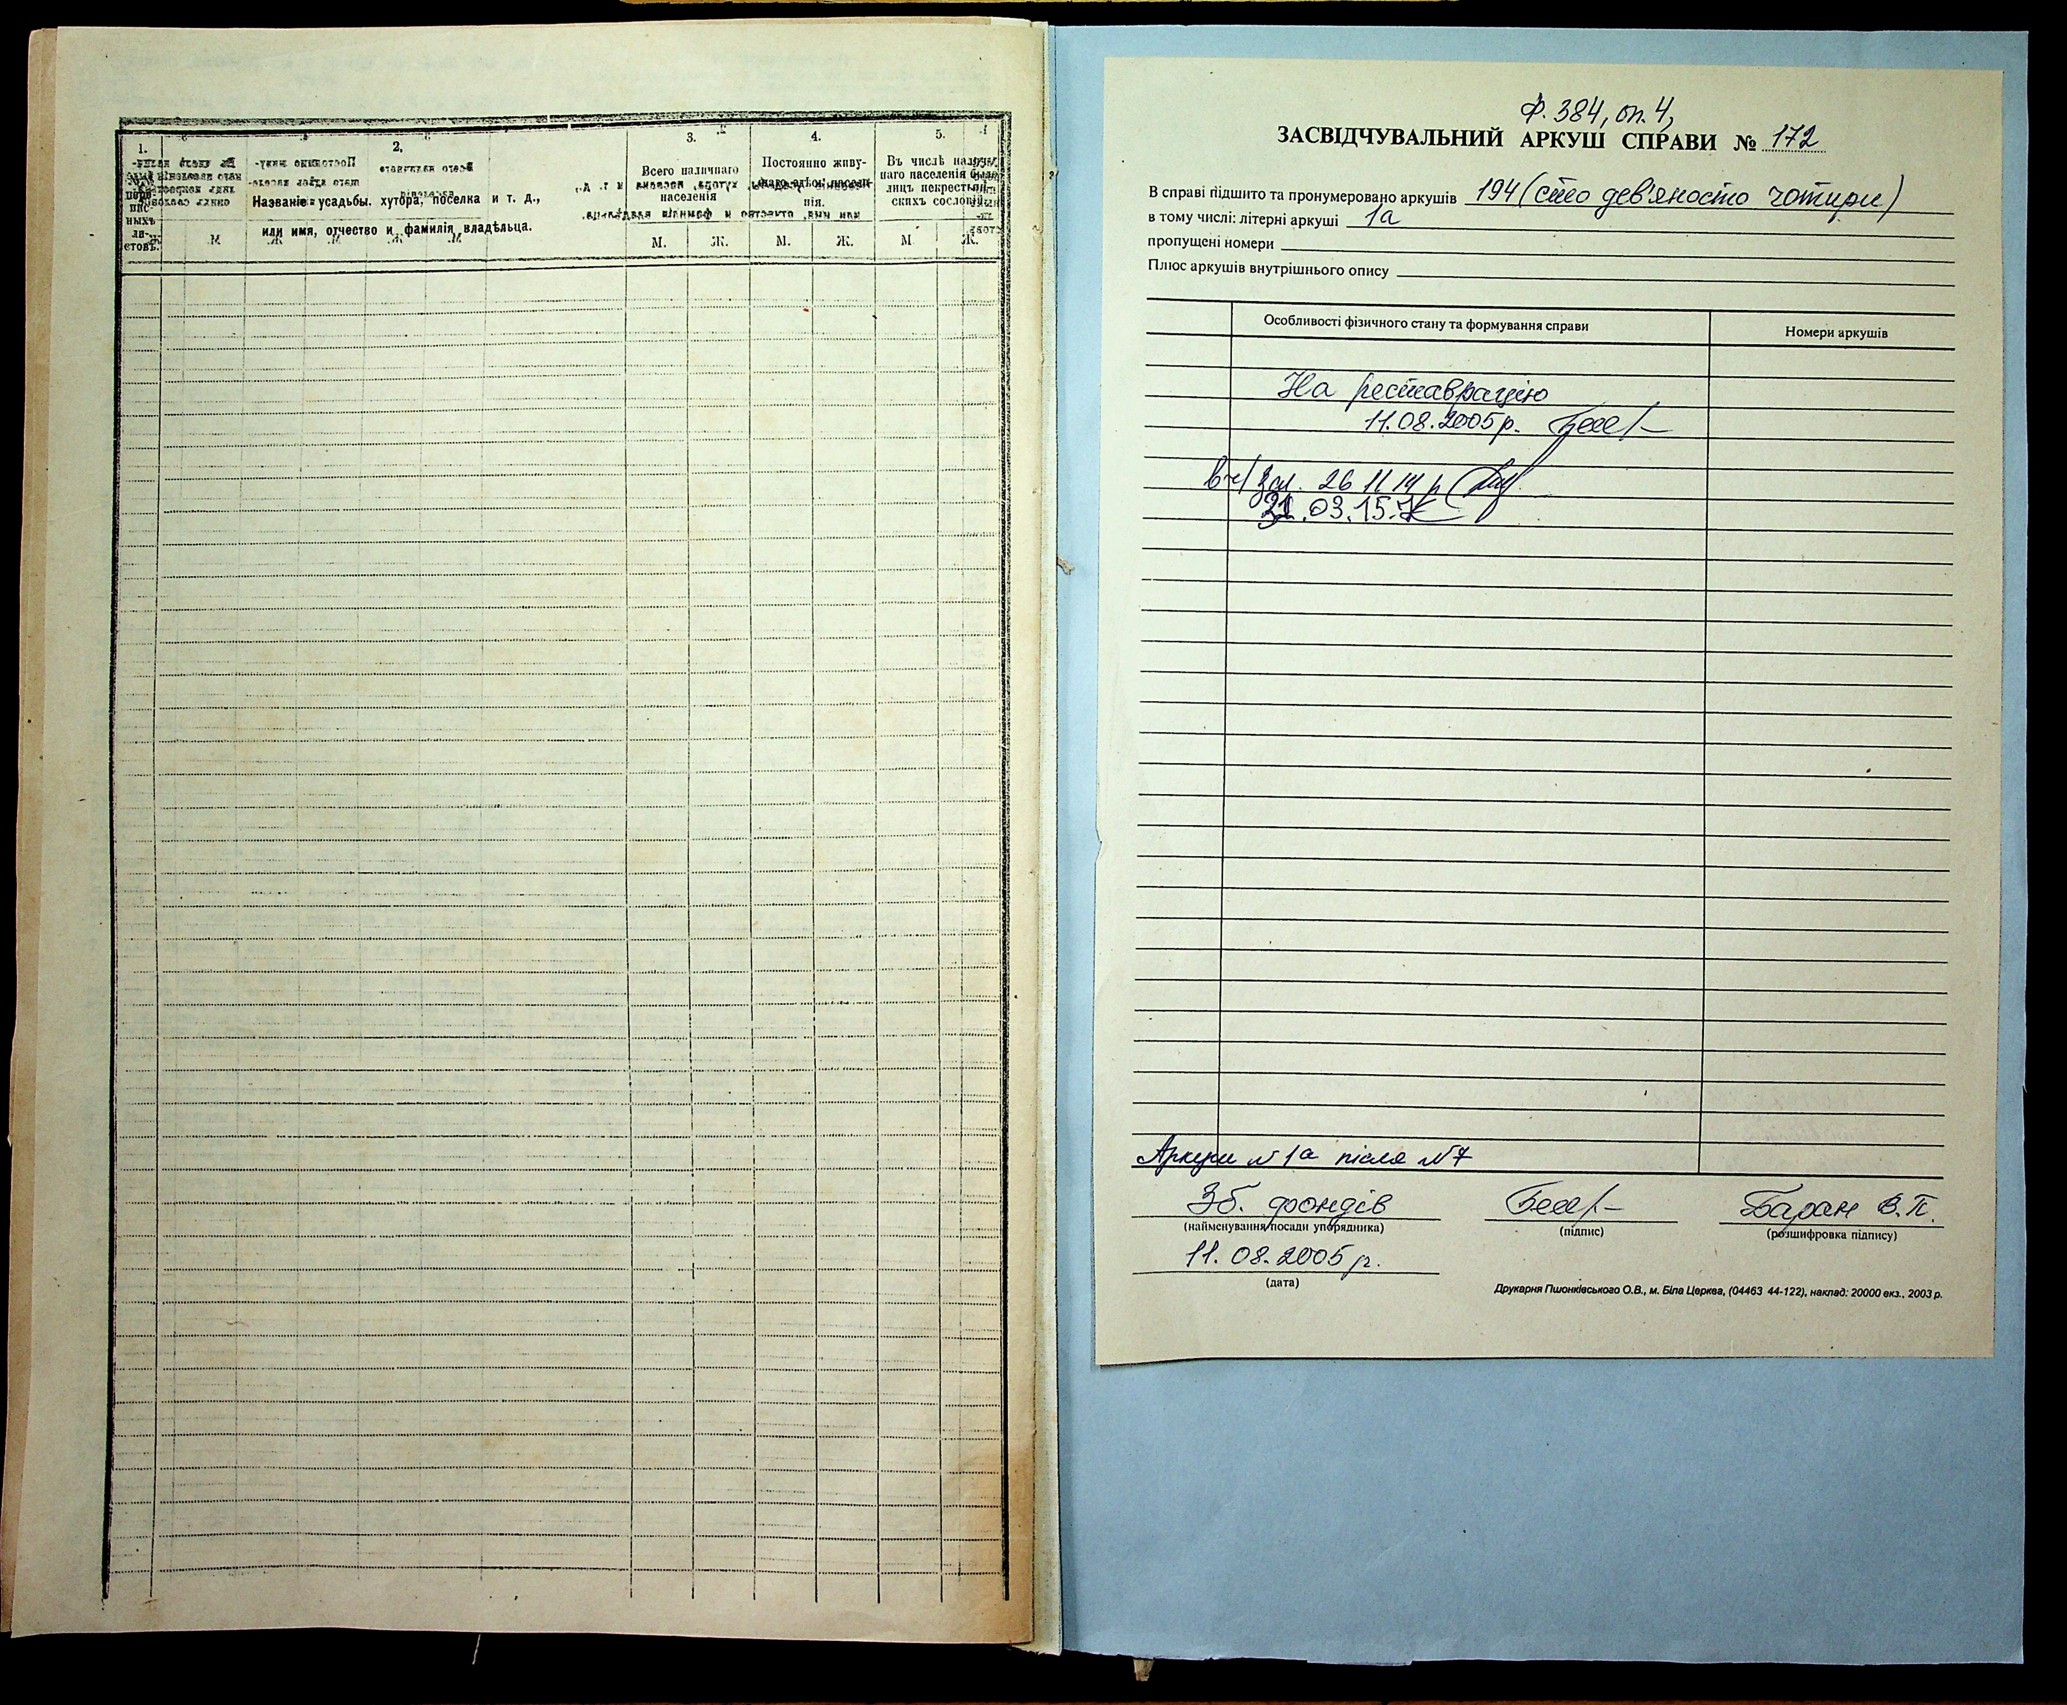 1.
2.
3.
4.
5.
пере-
пис-
ныхъ
ли-
стовъ.
Названіе усадьбы, хутора, поселка и т. д.,
или имя, отчество и фамилія владѣльца.
Всего наличнаго
населенія
М. Ж.
Постоянно живу-
нія.
М. Ж.
Въ числѣ налич-
наго населенія было
лицъ некрестьян-
скихъ сословій.
М. Ж.
Ф. 384, оп. 4,
ЗАСВІДЧУВАЛЬНИЙ АРКУШ СПРАВИ № 172
В справі підшито та пронумеровано аркушів 194 (сто дев'яносто чотири)
в тому числі: літерні аркуші 1а
пропущені номери
Плюс аркушів внутрішнього опису
Особливості фізичного стану та формування справи
Номери аркушів
На реставрацію
11.08.2005 р.
26 11 14 р
03.15.
Аркуш № 1а після № 7
Зб. фондів
(найменування посади упорядника)
(підпис)
Баран В.П.
(розшифровка підпису)
11.08.2005 р.
(дата)
Друкарня Пшонківського О.В., м. Біла Церква, (04463 44-122), наклад: 20000 екз., 2003 р.